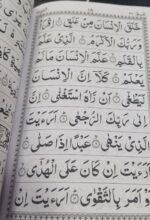 خَلَقَ الْاِنْسَانَ مِنْ عَلَقٍ ۚ اِقْرَاْ
وَرَبُّكَ الْاَكْرَمُ ۙ الَّذِیْ عَلَّمَ
بِالْقَلَمِ ۙ عَلَّمَ الْاِنْسَانَ مَا لَمْ
یَعْلَمْ ؕ كَلَّاۤ اِنَّ الْاِنْسَانَ
لَیَطْغٰۤی ۙ اَنْ رَّاٰهُ اسْتَغْنٰی ؕ اِنَّ
اِلٰی رَبِّكَ الرُّجْعٰی ؕ اَرَءَیْتَ
الَّذِیْ یَنْهٰی ۙ عَبْدًا اِذَا صَلّٰی ؕ
اَرَءَیْتَ اِنْ كَانَ عَلَی الْهُدٰۤی ۙ
اَوْ اَمَرَ بِالتَّقْوٰی ؕ اَرَءَیْتَ اِنْ